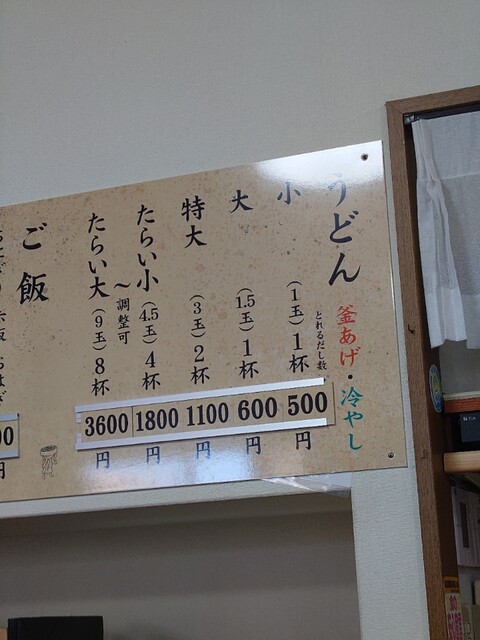 うどん 釜あげ・冷やし
とれるだし数
小 (1玉) 1杯 500円
大 (1.5玉) 1杯 600円
特大 (3玉) 2杯 1100円
たらい小 (4.5玉) 4杯 1800円
〜調整可
たらい大 (9玉) 8杯 3600円
ご飯